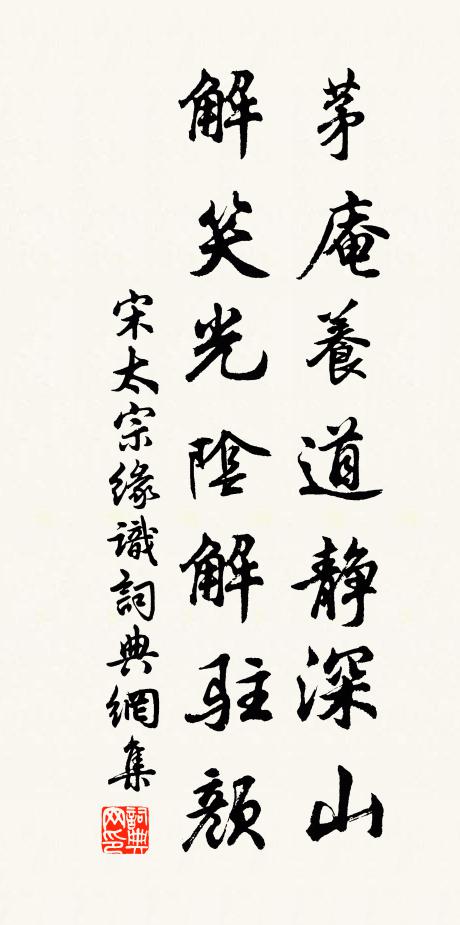 茅庵養道静深山
解笑光陰解駐顔
宋太宗緣識詞典網集
詞典網印